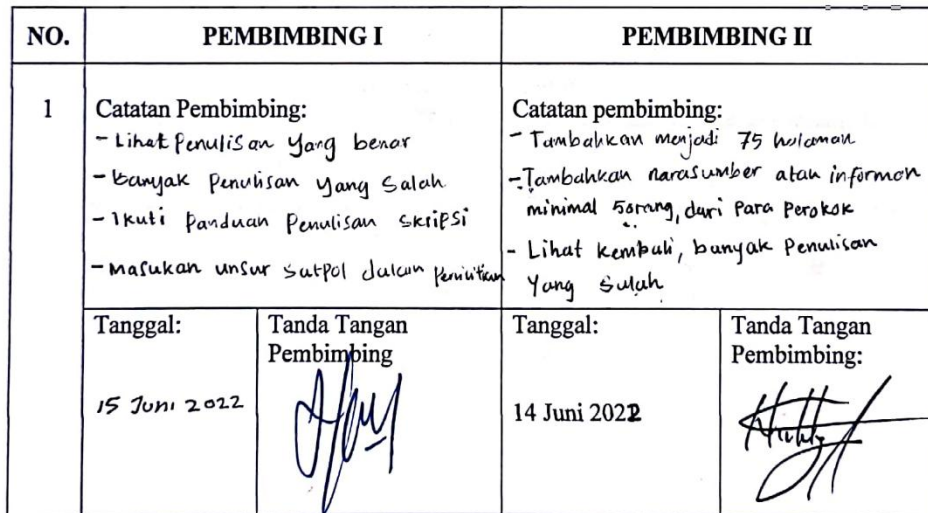 NO. PEMBIMBING I PEMBIMBING II
1
Catatan Pembimbing:
- Lihat Penulisan yang benar
- Banyak Penulisan yang Salah
- Ikuti Panduan Penulisan Skripsi
- Masukan unsur Satpol dalam
Tanggal:
15 Juni 2022
Tanda Tangan
Pembimbing
Catatan pembimbing:
- Tambahkan menjadi 75 halaman
- Tambahkan narasumber atau informan
minimal 5 orang, dari Para Perokok
- Lihat kembali, banyak Penulisan
Yang Salah
Tanggal:
14 Juni 2022
Tanda Tangan
Pembimbing: